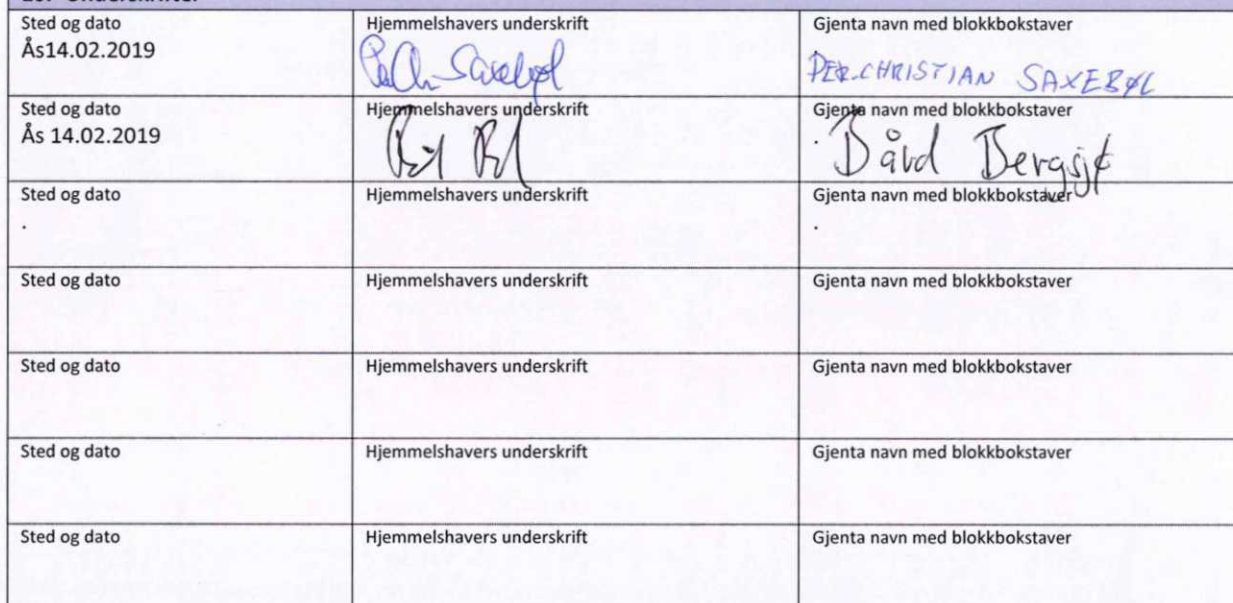 Sted og dato Hjemmelshavers underskrift Gjenta navn med blokkbokstaver
Ås14.02.2019 PER.CHRISTIAN SAXEBØL
Sted og dato Hjemmelshavers underskrift Gjenta navn med blokkbokstaver
Ås 14.02.2019 Bård Bergsjø
Sted og dato Hjemmelshavers underskrift Gjenta navn med blokkbokstaver
Sted og dato Hjemmelshavers underskrift Gjenta navn med blokkbokstaver
Sted og dato Hjemmelshavers underskrift Gjenta navn med blokkbokstaver
Sted og dato Hjemmelshavers underskrift Gjenta navn med blokkbokstaver
Sted og dato Hjemmelshavers underskrift Gjenta navn med blokkbokstaver